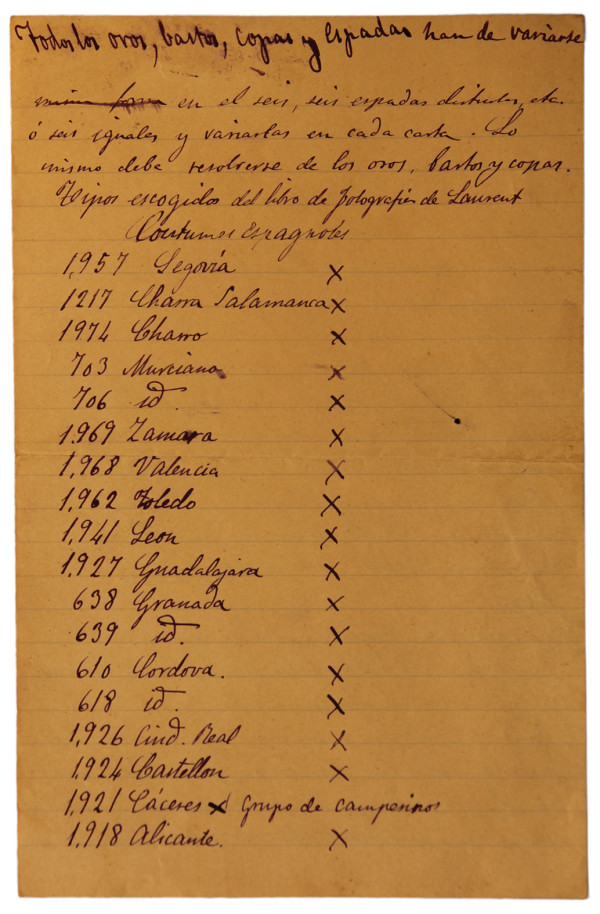 Todos los oros, bastos, copas y espadas han de variarse
misma forma en el seis, seis espadas distintas, etc.
ó seis iguales y variarlas en cada carta. Lo
mismo debe resolverse de los oros, bastos y copas.
Tipos escogidos del libro de fotografías de Laurent
Coutumes espagnoles
1,957 Segovia X
1217 Charra Salamanca X
1974 Charro X
703 Murciano X
706 id. X
1.969 Zamara X
1,968 Valencia X
1,962 Toledo X
1,941 Leon X
1,927 Guadalajara X
638 Granada X
639 id. X
610 Cordova. X
618 id. X
1,926 Ciud. Real X
1,924 Castellon X
1,921 Cáceres X grupo de campesinos
1,918 Alicante. X